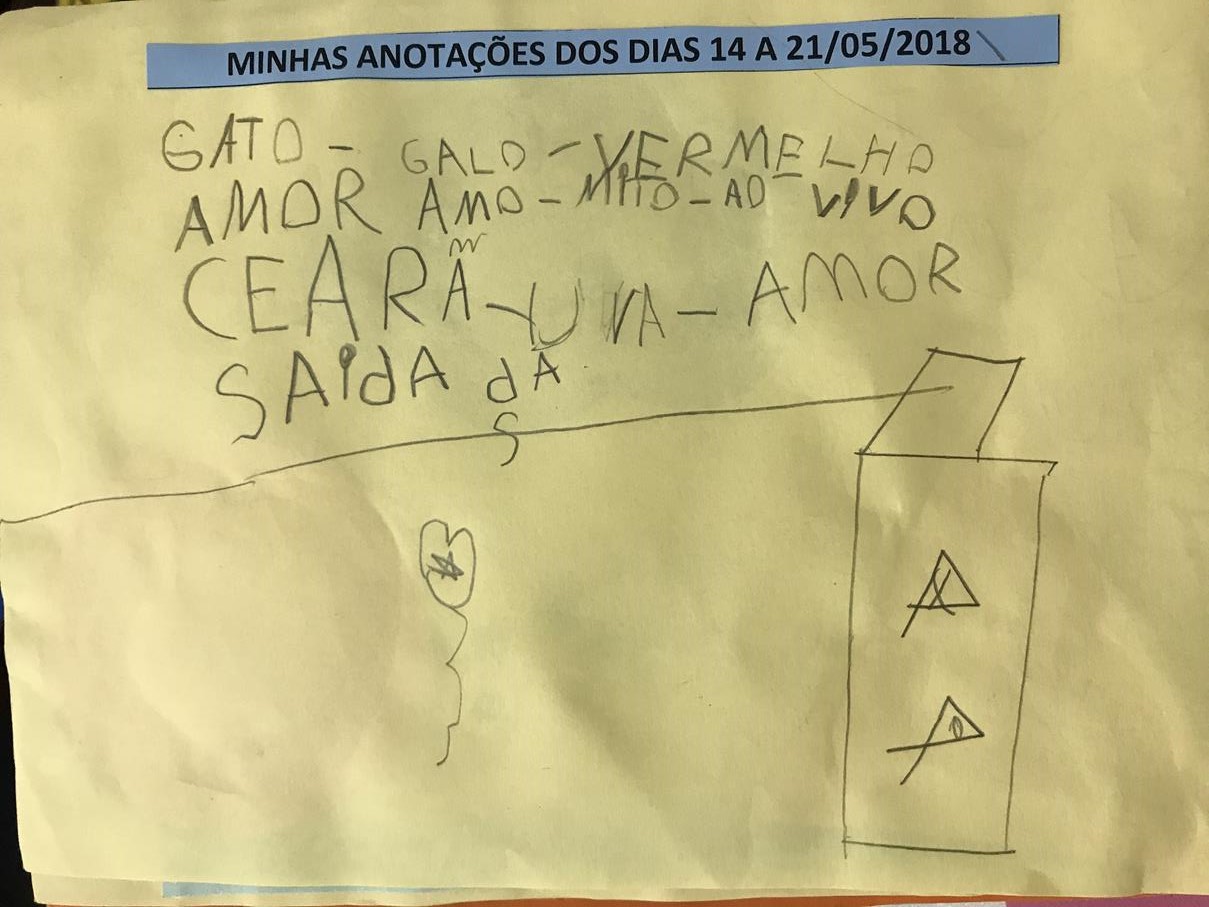 MINHAS ANOTAÇÕES DOS DIAS 14 A 21/05/2018
GATO - GALO - VERMELHO
AMOR AMO - MITO - AO VIVO
CEARÁ - UVA - AMOR
SAIdA dA
S